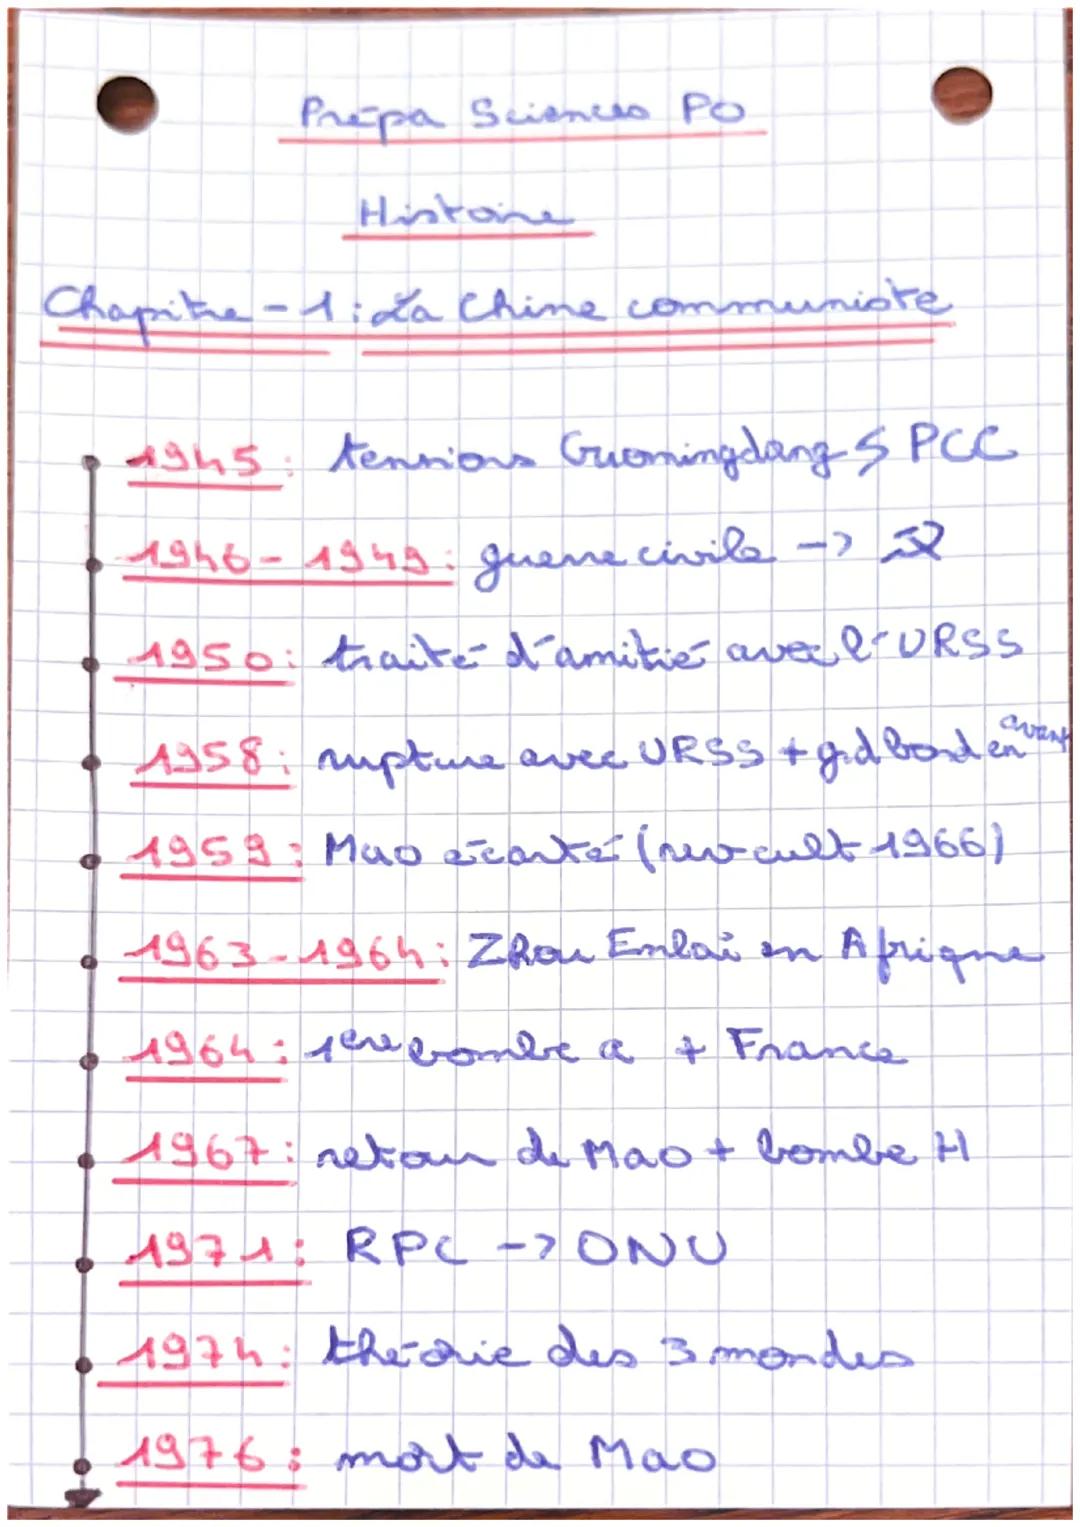 Prépa Sciences PO
Histoire
Chapitre-1: La Chine communiste
1945: tensions Guomingdang ↯ PCC
1946-1949: guerre civile -> ☭
1950: traité d'amitié avec l'URSS
1958: rupture avec URSS + grd bond en avant
1959: Mao écarté (rev cult 1966)
1963-1964: Zhou Enlai en Afrique
1964: 1ère bombe a + France
1967: retour de Mao + bombe H
1971: RPC -> ONU
1974: théorie des 3 mondes
1976: mort de Mao